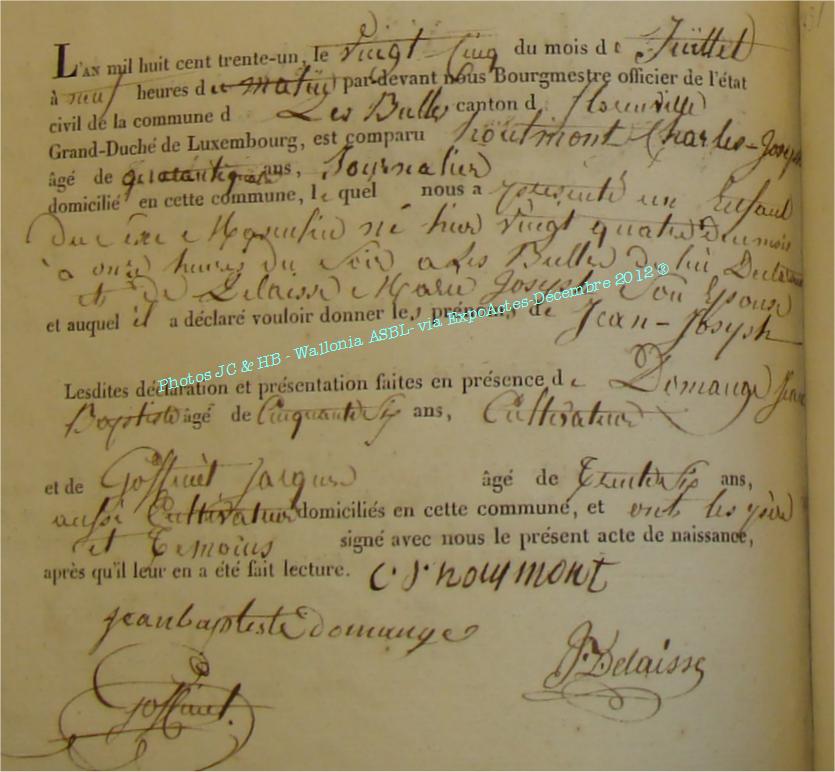 L'AN mil huit cent trente-un, le vingt-Cinq du mois de Juillet
à neuf heures du matin par-devant nous Bourgmestre officier de l'état
civil de la commune d Les Bulles canton d florenville
Grand-Duché de Luxembourg, est comparu Houtmont Charles-Joseph
âgé de ans, Journalier
domicilié en cette commune, le quel nous a présenté un Enfant
du sexe Masculin né hier vingt quatre du mois
à onze heures du Soir a Les Bulles de lui Déclarant
et de Delaisse Marie Joseph Son Epouse
et auquel il a déclaré vouloir donner les prénoms de Jean-Joseph
Photos JC & HB - Wallonia ASBL- via ExpoActes-Décembre 2012 ®
Lesdites déclaration et présentation faites en présence de Domange Jean
Baptiste âgé de Cinquante Six ans, Cultivateur
et de Goffinet Jacques âgé de Trente Six ans,
aussi Cultivateur domiciliés en cette commune, et ont les père
et Temoins signé avec nous le présent acte de naissance,
après qu'il leur en a été fait lecture. C J houymont
jeanbaptiste domange
J Delaisse
Goffinet.